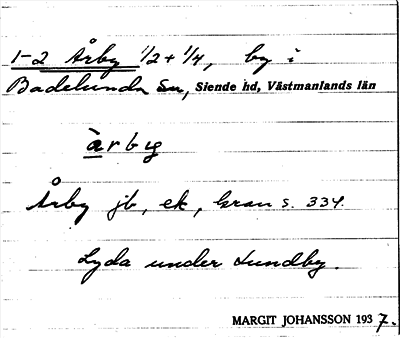 1-2 Årby 1/2 + 1/4, by i
Badelunda Sn, Siende hd, Västmanlands län
àrby
Årby jb, ek, kran s. 334.
Lyda under Lundby.
MARGIT JOHANSSON 1937.